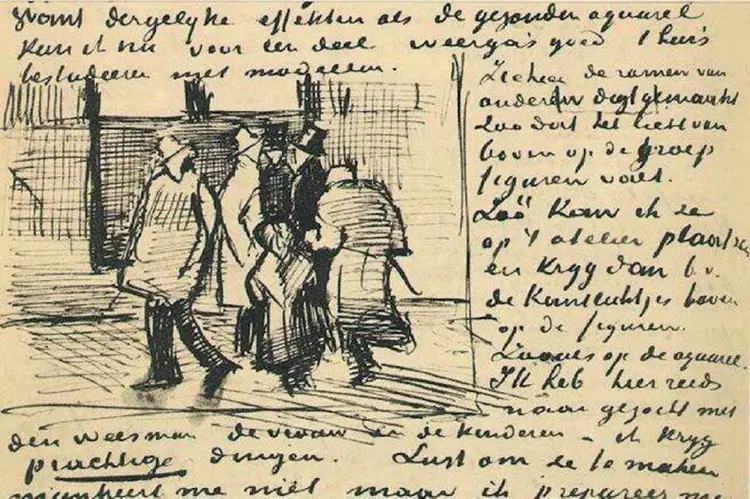 want dergelyke effekten als de gezonden aquarel
kan ik nu voor een deel weergaas goed t huis
bestudeeren met modellen.
Ik heb de ramen van
onderen digt gemaakt
zoodat het licht van
boven op de groep
figuren valt.
Zoo kan ik ze
op 't atelier plaatsen
en kryg dan b.v.
de kantlichtjes boven
op de figuren.
Zooals op de aquarel.
Ik heb hier reeds
naar gezocht met
den weesman de vrouw en de kinderen – ik kryg
prachtige dingen. Lust om ze te maken
mankeert me niet maar ik prepareer me